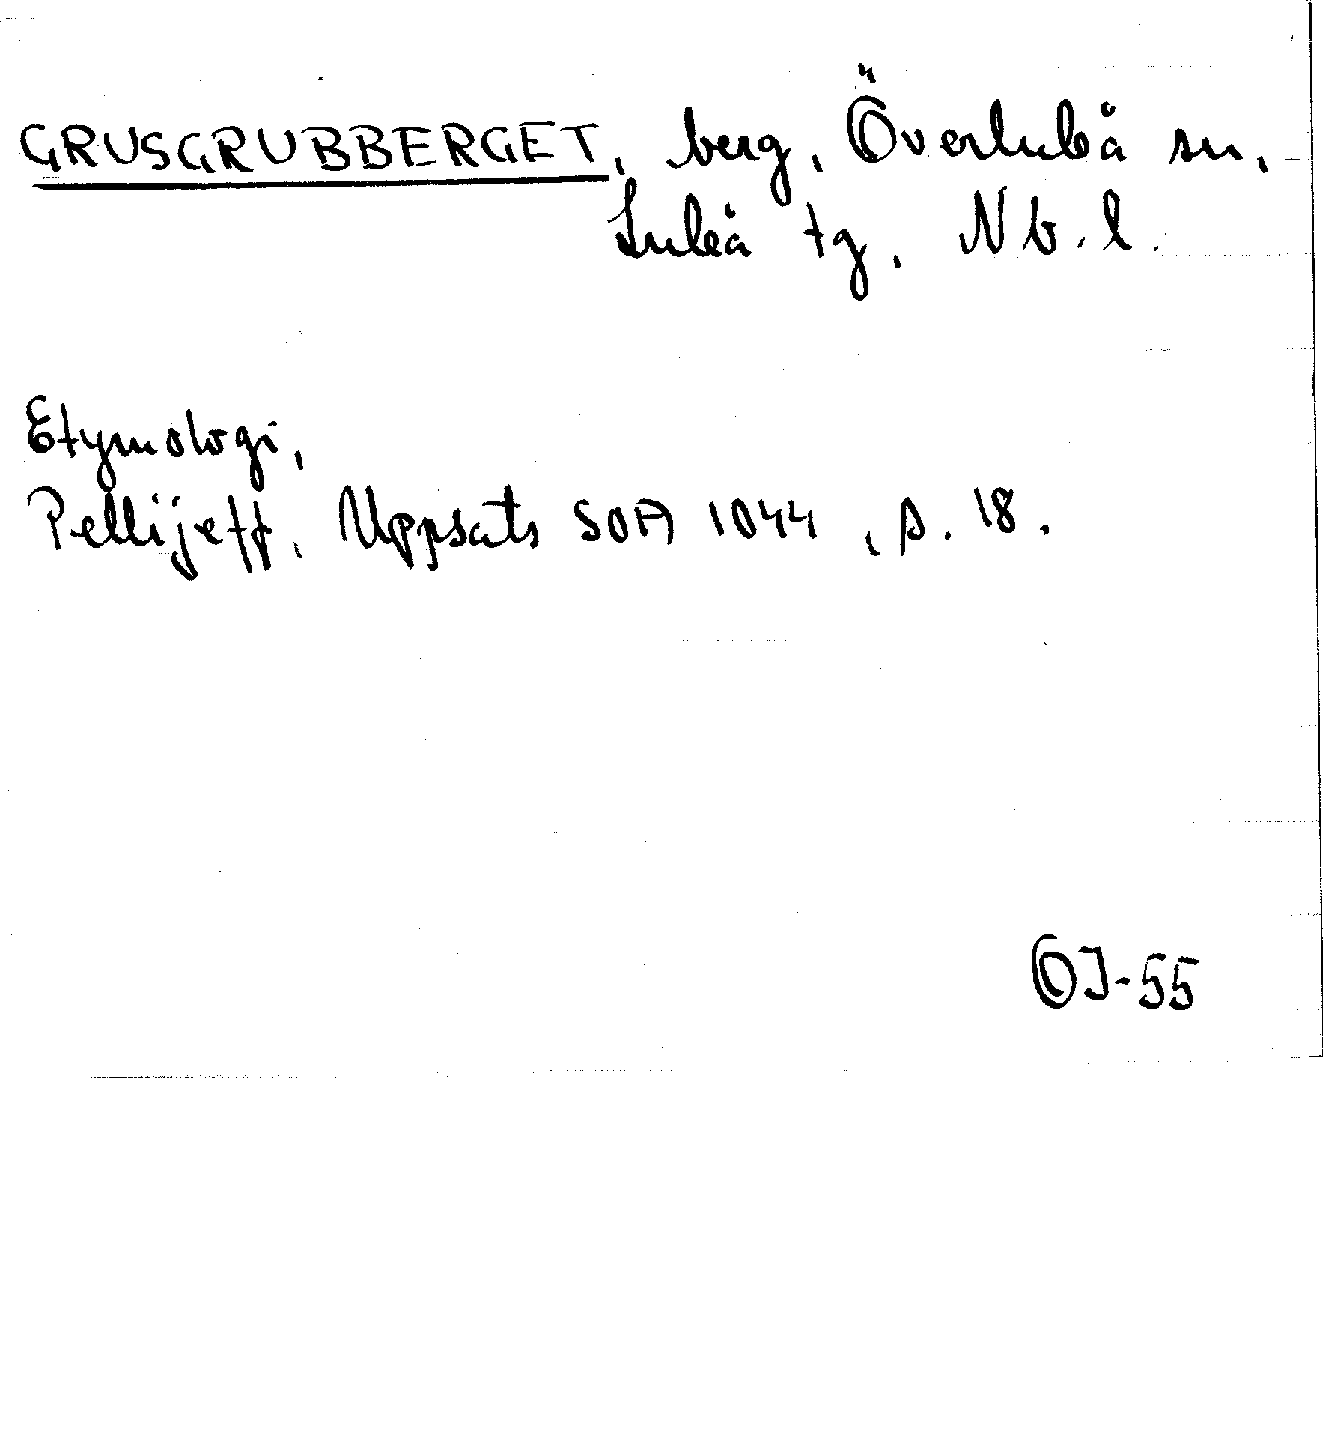 GRUSGRUBBERGET, berg, Överluleå sn,
Luleå tg, Nb.l.
Etymologi,
Pellijeff, Uppsats SOA 1044, s. 18.
OJ-55